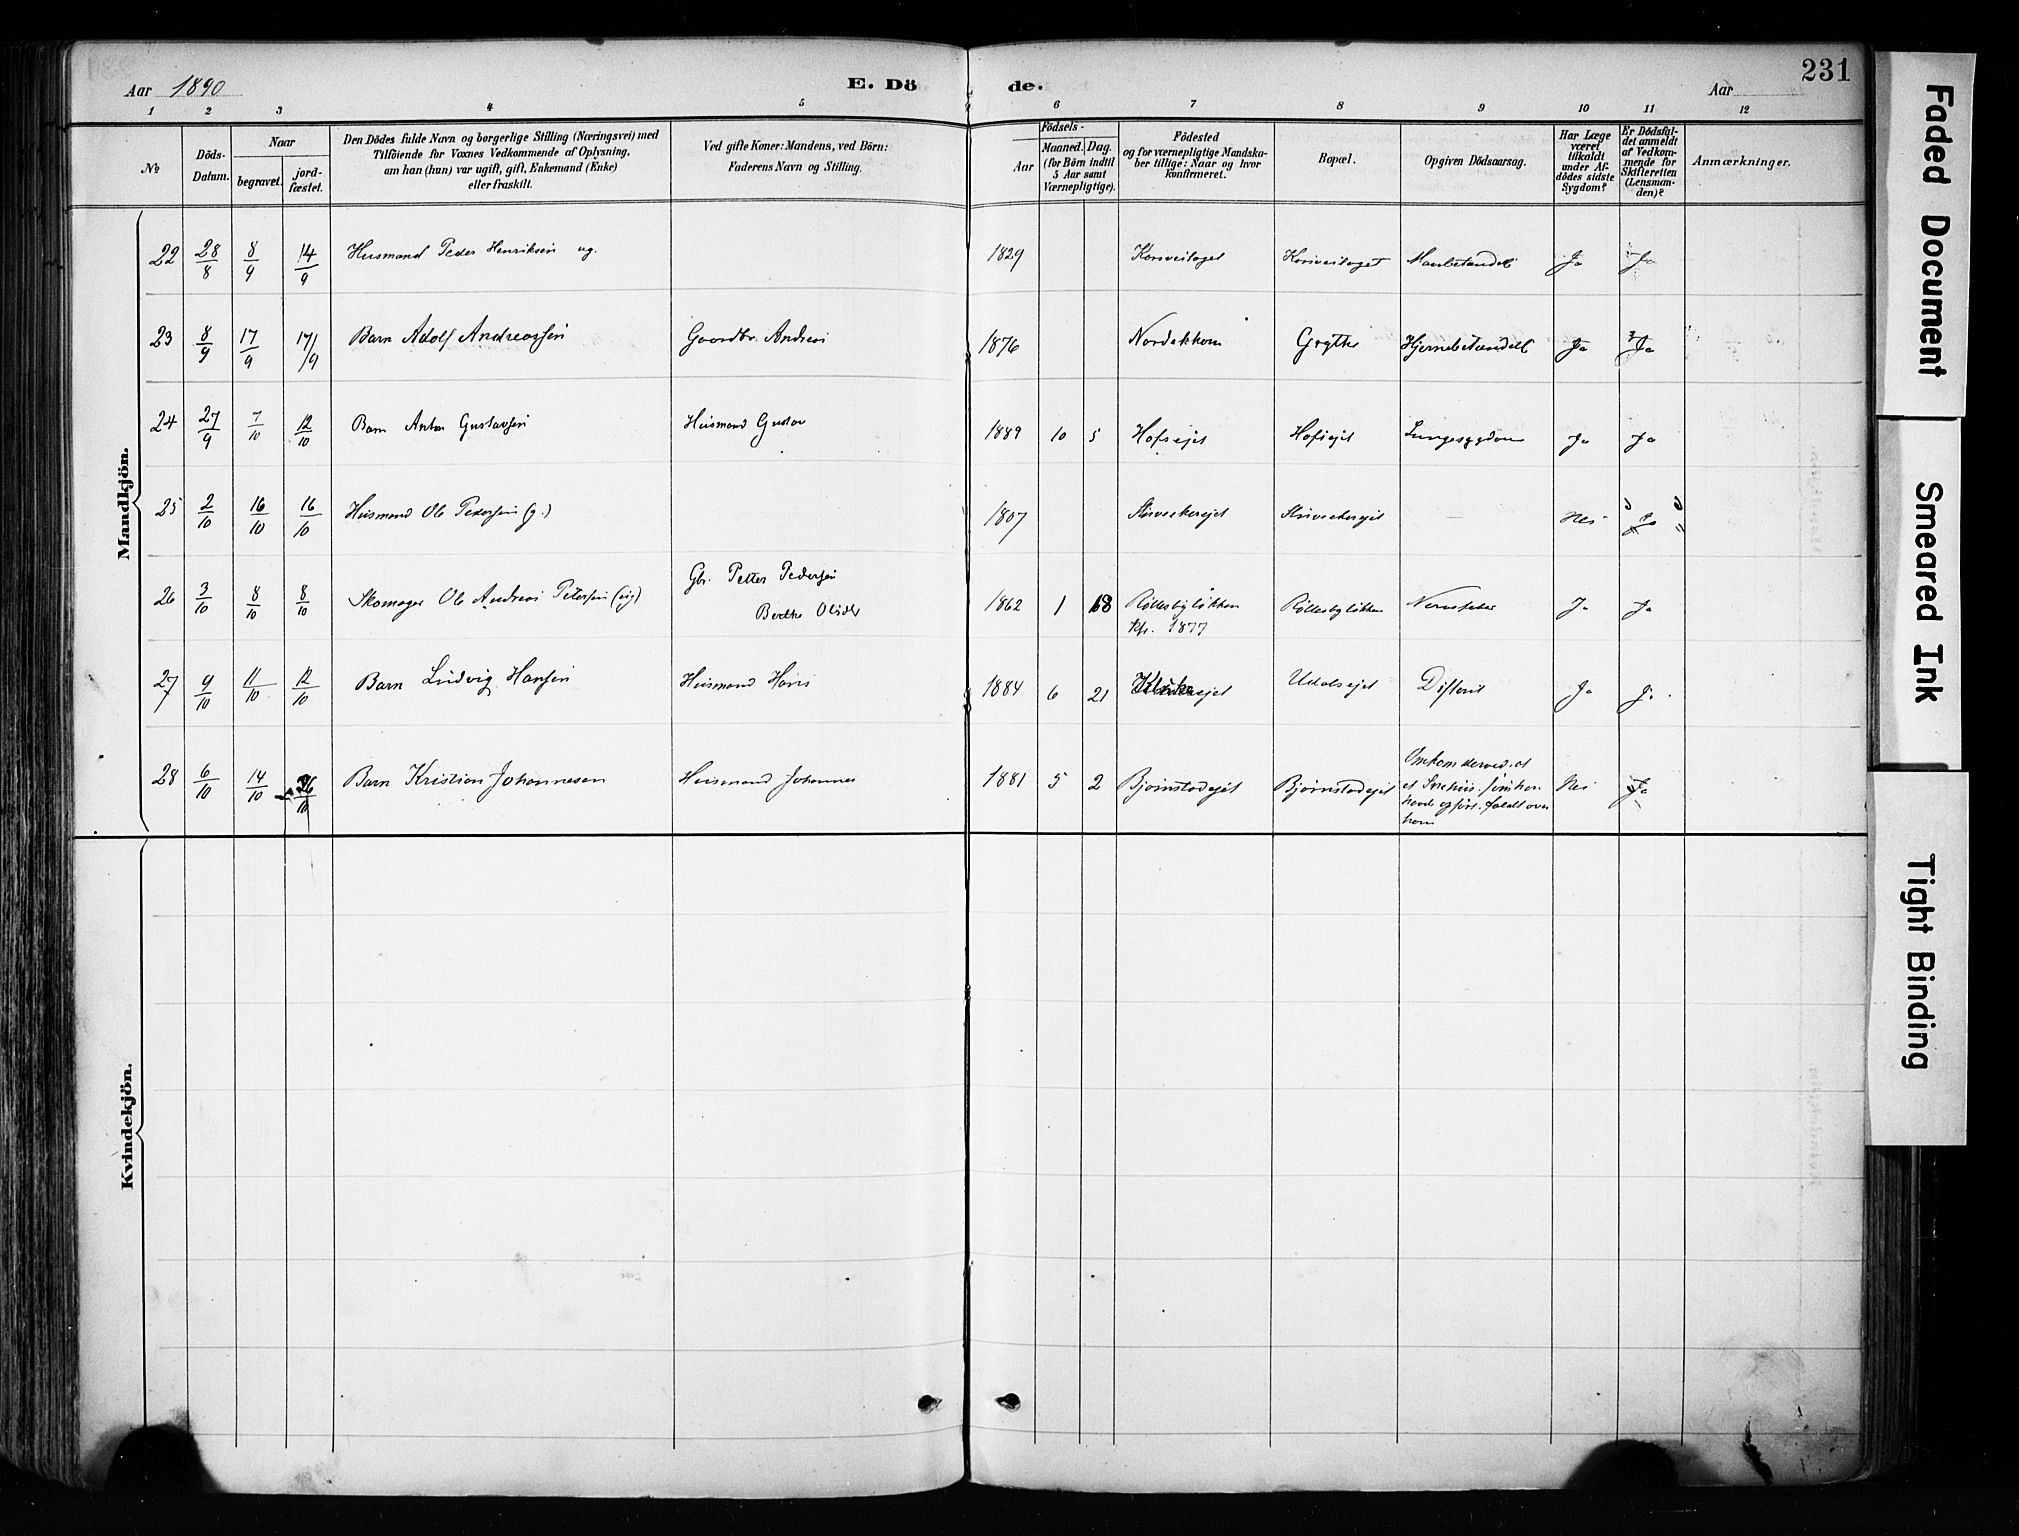 231
Aar 1890 E. Dö de. Aar
1 2 3 4 5 6 7 8 9 10 11 12
№
Döds-Datum.
Naar
begravet.
jord-fæstet.
Den Dödes fulde Navn og borgerlige Stilling (Næringsvei) med
Tilföiende for Voxnes Vedkommende af Oplysning,
om han (hun) var ugift, gift, Enkemand (Enke)
eller fraskilt.
Ved gifte Koner: Mandens, ved Börn:
Faderens Navn og Stilling.
Födsels-
Aar
Maaned. Dag.
(for Börn indtil
5 Aar samt
Værnepligtige).
Födested
og for værnepligtige Mandska-
ber tillige: Naar og hvor
konfirmeret.
Bopæl.
Opgiven Dödsaarsag.
Har Læge
været
tilkaldt
under Af-
dödes sidste
Sygdom?
Er Dödsfal-
det anmeldt
af Vedkom-
mende for
Skifteretten
(Lensman-
den)?
Anmærkninger.
Mandkjön.
22 28/8 8/9 14/9 Husmand Peder Henriksen ug. 1829 Korsveitaget Ja Ja
23 8/9 17/9 17/9 Barn Adolf Andreassen Gaardbr. Andreas 1876 Grythe Hjernebetændelse Ja Ja
24 27/9 7/10 12/10 Barn Anton Gustavsen Husmand Gustav 1889 10 5 Hofsejet Hofsejet Lungesygdom Ja Ja
25 2/10 16/10 16/10 Husmand Ole Pedersen (g.) 1807 — Nei Ja
26 3/10 8/10 8/10 Skomager Ole Andreas Petersen (ug) Gbr. Petter Pedersen
Berthe Olsdtr
1862 1 18 Röllesbylökken Röllesbylökken Ja Ja
Kfr. 1877
27 9/10 11/10 12/10 Barn Ludvig Hansen Husmand Hans 1884 6 21 Difterit Ja Ja.
28 6/10 14/10 26/10 Barn Kristian Johannesen Husmand Johannes 1881 5 2 Bjørnstadejet Bjørnstadejet Omkom derved, at
et Snehus, som han
havde opført, faldt over
ham
Nei Ja
Kvindekjön.
Faded Document
Smeared Ink
Tight Binding